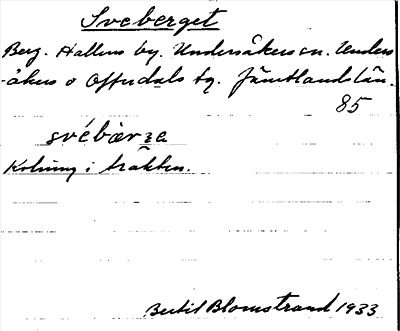 Sveberget
Berg. Hallens by. Undersåkers sn. Unders
-åkers o Offerdals tg. Jämtlands län.
85
svébærʒa
Kolning i trakten.
Bertil Blomstrand 1933